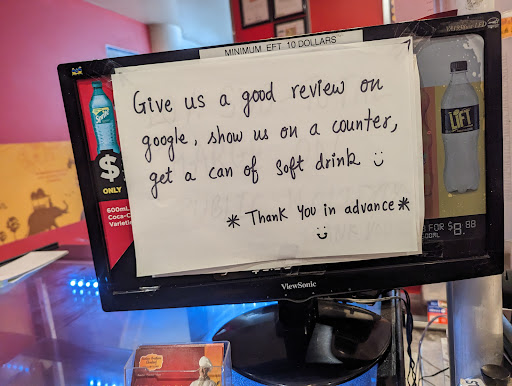 MINIMUM EFT 10 DOLLARS
ViewSonic
Give us a good review on
google, show us on a counter,
get a can of soft drink ☺
* Thank you in advance *
☺
Sprite
LIFT
$
ONLY
600mL
Coca-C
Varieti
FOR $8.88
ViewSonic